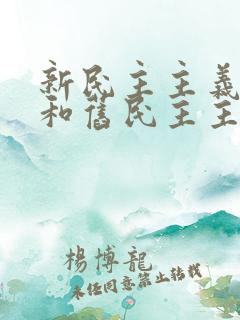 新民主主義
和舊民主主
楊博龍
未经同意禁止转载